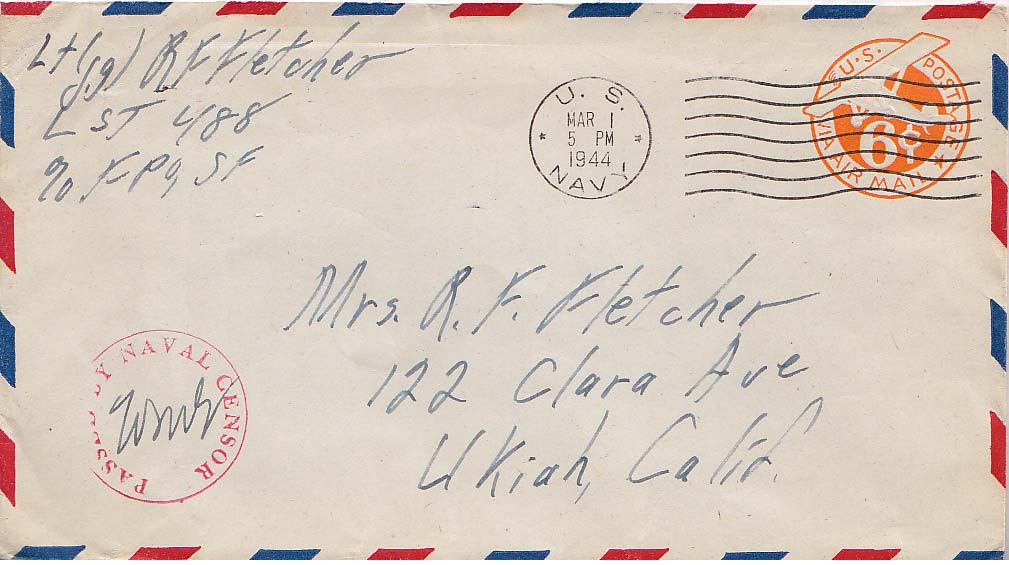 Lt(jg) R F Fletcher
LST 488
℅ FPO, SF
U.S. NAVY
MAR 1
5 PM
1944
U.S. POSTAGE
6¢
VIA AIR MAIL
Mrs. R. F. Fletcher
122 Clara Ave
Ukiah, Calif.
PASSED BY NAVAL CENSOR